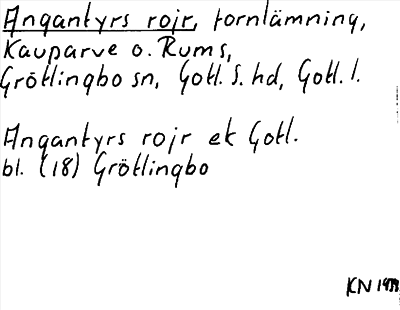 Angantyrs rojr, fornlämning,
Kauparve o. Rums,
Grötlingbo sn, Gotl. S. hd, Gotl. l.
Angantyrs rojr ek Gotl.
bl. (18) Grötlingbo
KN